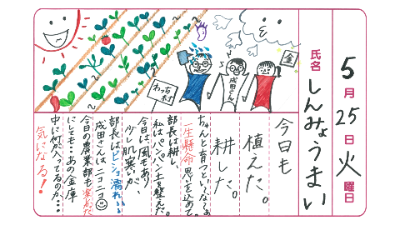 5月25日火曜日
氏名 しんみょうまい
金
わっしょい村
成田さん
今日も
植えた。
耕した。
ちゃんと育つといいなあ
一生懸命思いを込めて
部長は耕し、
私はパンパン土を整えた。
今日は風もあり
少し肌寒いが、
部長はビショ濡れ、、、
成田さんはニコニコ
今日の農業部も
にしても、あの金庫
中に何入ってるのか・・・
気になる！